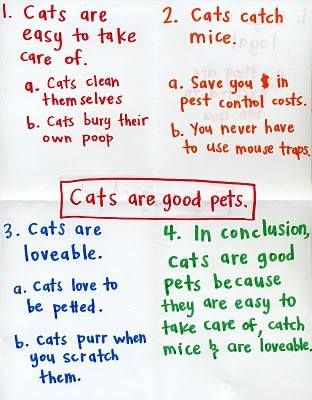 1. Cats are
easy to take
care of.
a. Cats clean
themselves
b. Cats bury their
own poop
2. Cats catch
mice.
a. Save you $ in
pest control costs.
b. You never have
to use mouse traps.
Cats are good pets.
3. Cats are
loveable.
a. Cats love to
be petted.
b. Cats purr when
you scratch
them.
4. In conclusion,
cats are good
pets because
they are easy to
take care of, catch
mice & are loveable.